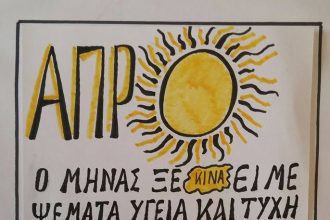 ΑΠΡ
Ο ΜΗΝΑΣ ΞΕΚΙΝΑΕΙ ΜΕ
ΨΕΜΑΤΑ ΥΓΕΙΑ ΚΑΙ ΤΥΧΗ